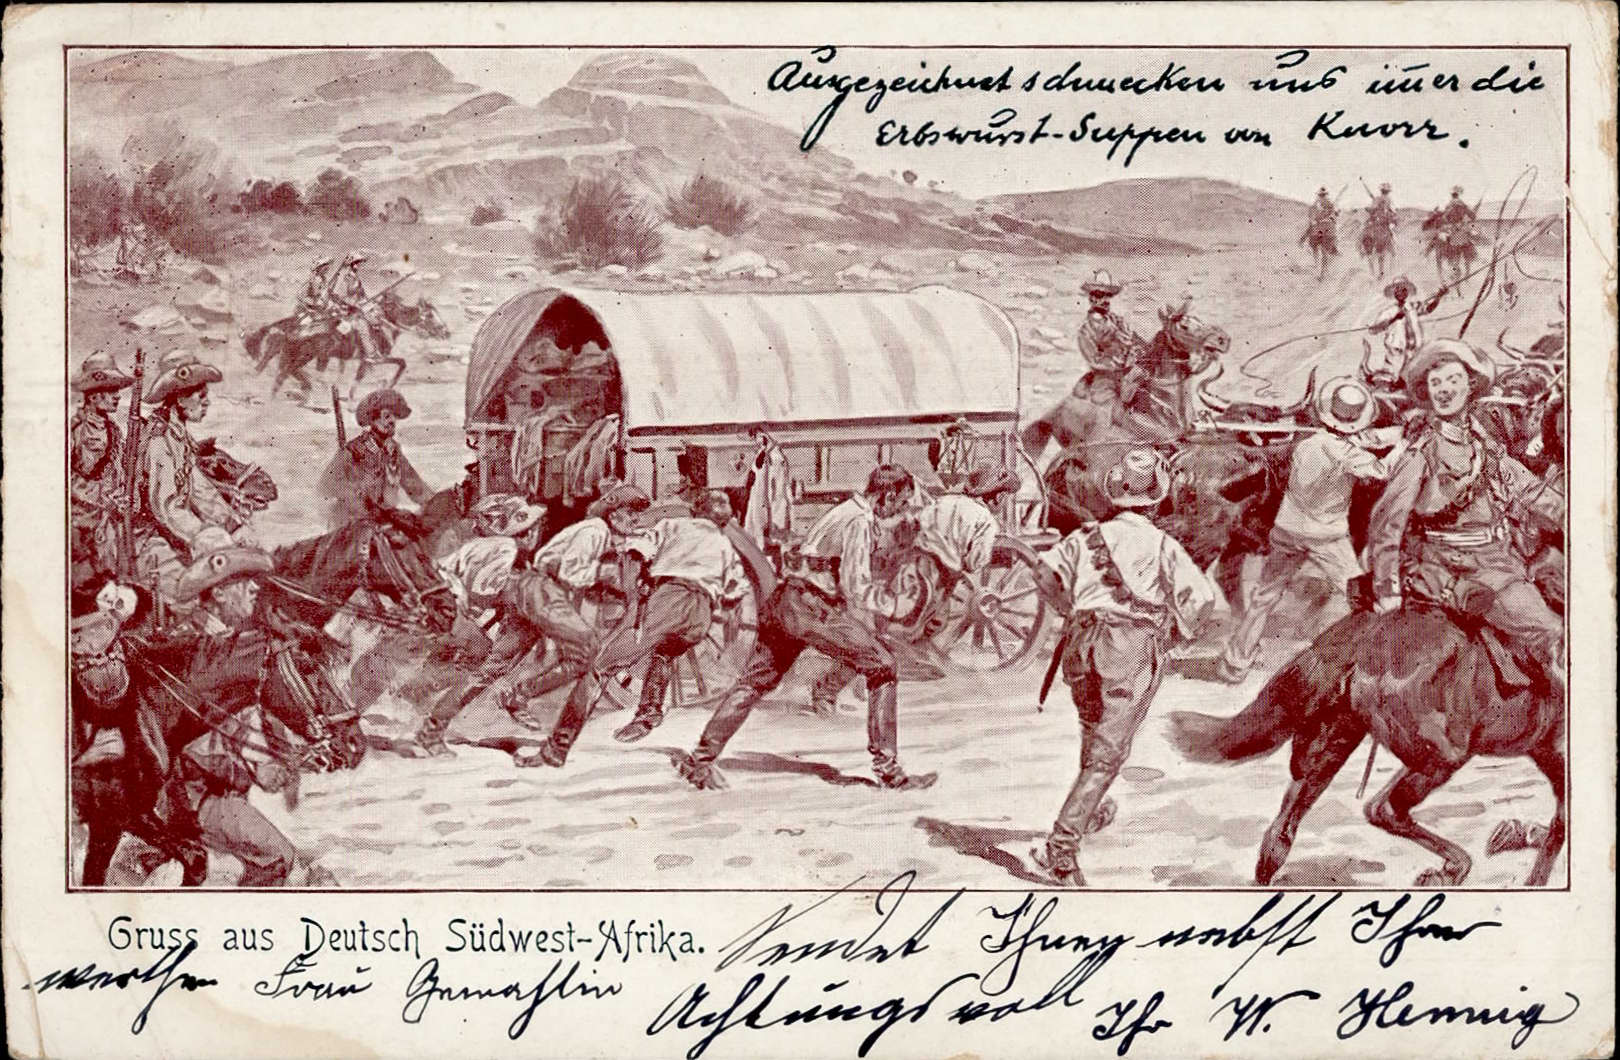 Ausgezeichnet schmecken uns im̅er die
Erbswurst-Suppen von Knorr.
Gruss aus Deutsch Südwest-Afrika.
Sendet Ihnen nebst Ihrer
werthen Frau Gemahlin
Achtungsvoll Ihr W. Hennig